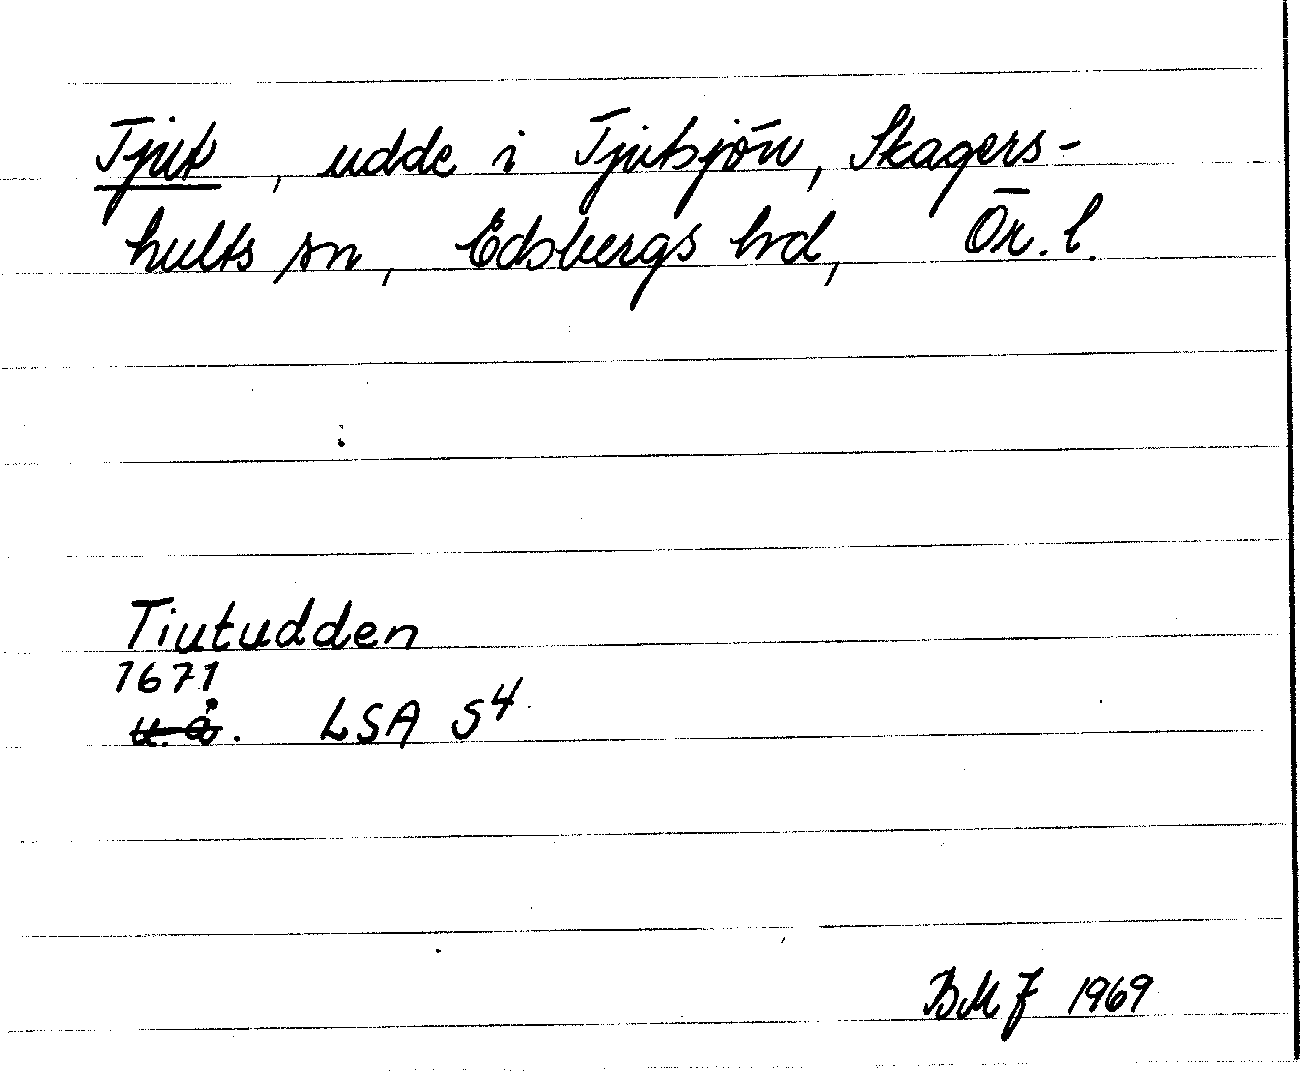 Tjuk, udde i Tjuksjön, Skagers-
hults sn, Edsbergs hd, Ör. l.
Tiutudden
1671
u. å. LSA S4
BMJ 1969